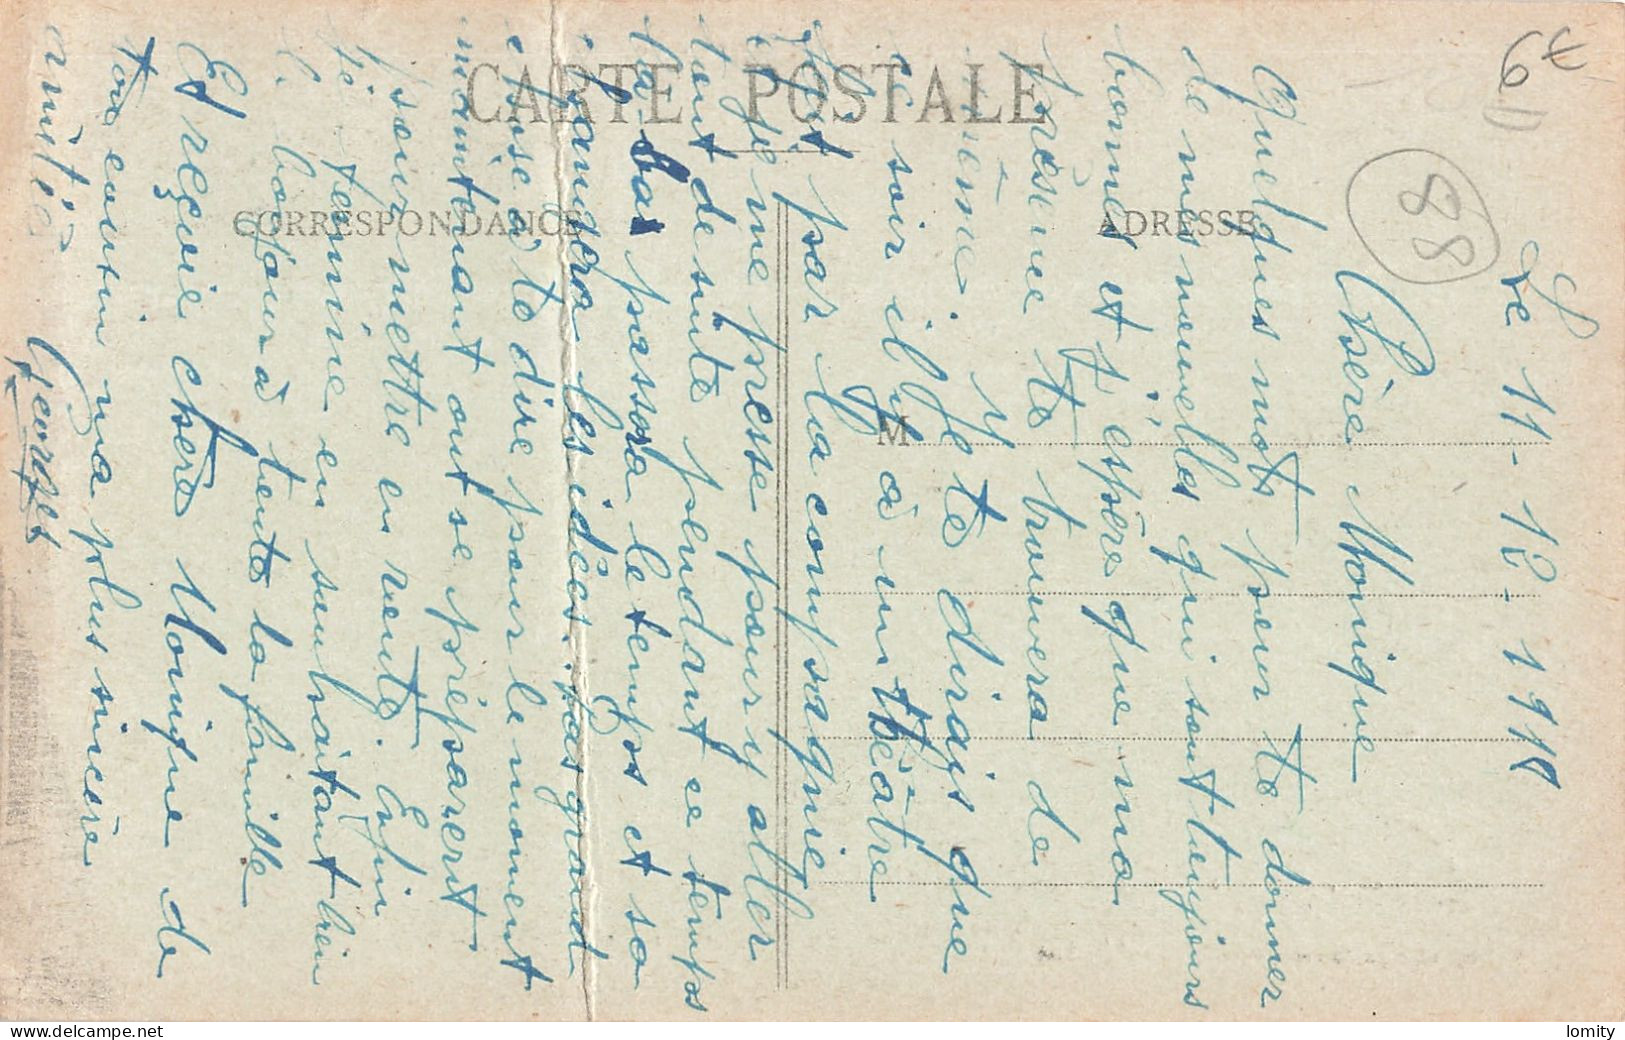 CARTE POSTALE
CORRESPONDANCE
ADRESSE
M
88
Le 11-12-1918
Chère Monique
Quelques mots pour te donner
de mes nouvelles qui sont toujours
bonnes et j'espère que ma
présente te trouvera de
même. Je te dirais que
ce soir il y à un théâtre
fait par la compagnie
je me presse pour y aller
tout de suite pendant ce temps
la bas passera le temps et sa
changera les idées. pas grand
chose à te dire pour le moment
maintenant ont se préparent
pour mettre en route. Enfin
je termine en souhaitant bien
le bonjour à toute la famille
Et reçoie chère Monique de
ton cousin ma plus sincère
amitié
Georges
lomity